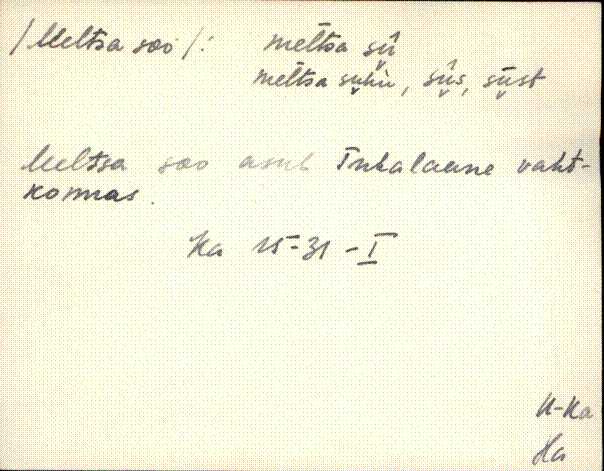 /Meltsa soo/: meltsa sụ̄̂
meltsa sụhu, sụ̄̂s, sụ̄st
Meltsa soo asub Tuhalaane vaht-
konnas.
Ka 15-31-I
K-Ka
Ha